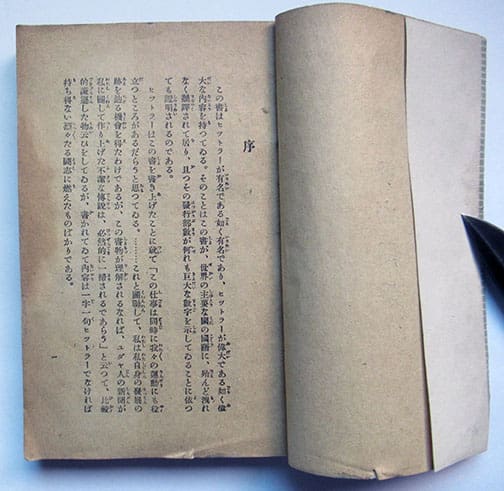 序
この書はヒットラーが有名である如く有名であり、ヒットラーが偉大である如く偉
大な内容を持つてゐる。そのことはこの書が、世界の主要な國の國語に、殆んど洩れ
なく飜譯されて居り、且つその發行部數が何れも巨大な數字を示してゐることに依つ
ても證明されるのである。
ヒットラーはこの書を書き上げたことに就て「この仕事は同時に我々の運動にも役
立つところがあるだらうと思つてゐる。………これと關聯して、私は私自身の發展の
跡を辿る機會を得たわけであるが、この書物が理解されるなれば、ユダヤ人の新聞が
私に關して作り上げた不潔な傳説は、必然的に一掃されるであらう」と云つて、比較
的謙遜した物云ひをしてゐるが、書かれてゐて内容は一字一句ヒットラーでなければ
持ち得ない烈々たる鬪志に燃えたものばかりである。
一